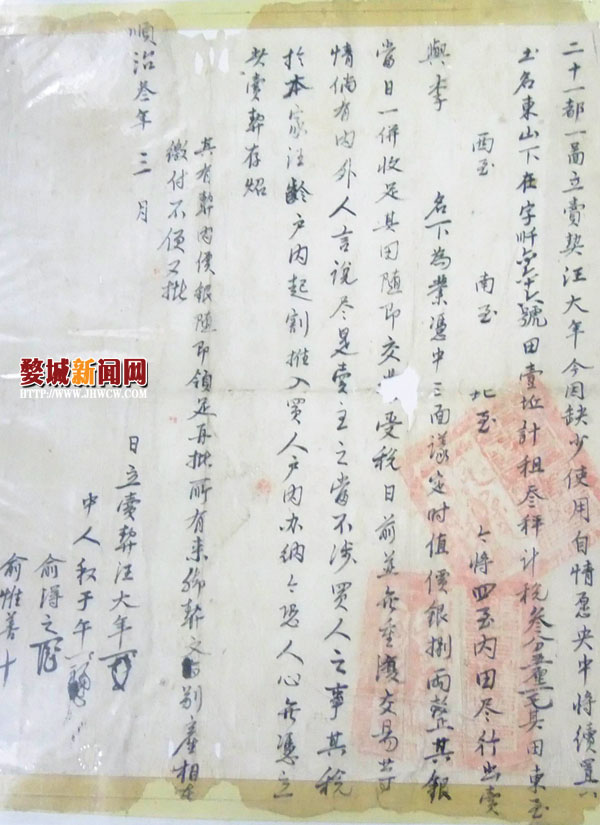 二十一都一啚立賣契汪大年今因缺少使用自情愿央中將續置
土名東山下在字號田壹坵計租叁秤計稅叁分其田東至
西至 南至 北至 今將四至內田尽行出賣
與李 名下為業憑中三面議定時值價銀捌兩整其銀
當日一併收足其田隨即交受稅日前並無重復交易等
情倘有內外人言說尽是賣主之當不涉買人之事其稅
於本家汪戶內起割推入買人戶內办納今恐人心無憑立
此賣契存照
其有契內價銀隨即領足再批所有來脚契文与別產相
繳付不便又批
順治叁年三月
日立賣契汪大年
中人
俞得之
俞惟善十
婺城新闻网
HTTP://WWW.JHWCW.COM